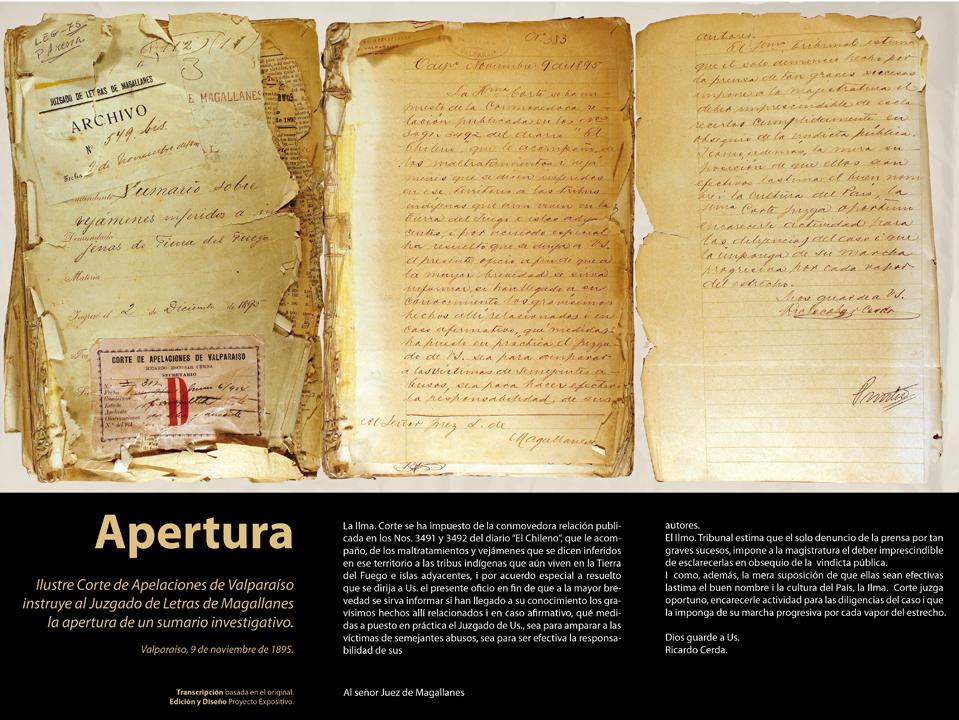 LEG-75
P. Arena
JUZGADO DE LETRAS DE MAGALLANES
ARCHIVO
N° 579 bis.
E MAGALLANES
Fecha 2 de Noviembre de
Sumario sobre
vejámenes inferidos a in
Demandado
jenas de Tierra del Fuego
Materia
Ingresó el 2 de Diciembre de 1895
CORTE DE APELACIONES DE VALPARAISO
RICARDO ESCOBAR CERDA
SECRETARIO
D
N° 383
Valpo. Noviembre 9 de 1895
La Iltma. Corte se ha im
puesto de la conmovedora re-
lación publicada en los nos.
3491 3492 del diario "El
Chileno", que le acompaño, de
los maltratamientos i vejá
menes que se dicen inferidos
en ese territorio a las tribus
indíjenas que aun viven en la
Tierra del Fuego e islas adya
centes, i por acuerdo especial
ha resuelto que se dirija a VS.
el presente oficio a fin de que a
la mayor brevedad se sirva
informar si han llegado a su
conocimiento los gravísimos
hechos allí relacionados i en
caso afirmativo, qué medidas
ha puesto en práctica el juzga
do de VS. sea para amparar
a las víctimas de semejantes a-
busos, sea para hacer efectiva
la responsabilidad de sus
Al Señor Juez L. de
Magallanes
autores.
El Iltmo. Tribunal estima
que el solo denuncio hecho por
la prensa de tan graves sucesos
impone a la magistratura el
deber imprescindible de escla
recerlos cumplidamente en
obsequio de la vindicta pública.
I como, además, la mera su-
posición de que ellos sean
efectivos lastima el buen nom
bre i la cultura del País, la
Iltma Corte juzga oportuno
encarecerle actividad para
las dilijencias del caso i que
la imponga de su marcha
progresiva por cada vapor
del estrecho.
Dios guarde a VS.
Apertura
Ilustre Corte de Apelaciones de Valparaíso
instruye al Juzgado de Letras de Magallanes
la apertura de un sumario investigativo.
Valparaíso, 9 de noviembre de 1895.
Transcripción basada en el original.
Edición y Diseño Proyecto Expositivo.
La Ilma. Corte se ha impuesto de la conmovedora relación publi-
cada en los Nos. 3491 y 3492 del diario "El Chileno", que le acom-
paño, de los maltratamientos y vejámenes que se dicen inferidos
en ese territorio a las tribus indígenas que aún viven en la Tierra
del Fuego e islas adyacentes, i por acuerdo especial a resuelto
que se dirija a Us. el presente oficio en fin de que a la mayor bre-
vedad se sirva informar si han llegado a su conocimiento los gra-
vísimos hechos alli relacionados i en caso afirmativo, qué medi-
das a puesto en práctica el Juzgado de Us., sea para amparar a las
víctimas de semejantes abusos, sea para ser efectiva la responsa-
bilidad de sus
Al señor Juez de Magallanes
autores.
El Ilmo. Tribunal estima que el solo denuncio de la prensa por tan
graves sucesos, impone a la magistratura el deber imprescindible
de esclarecerlas en obsequio de la vindicta pública.
I como, además, la mera suposición de que ellas sean efectivas
lastima el buen nombre i la cultura del País, la Ilma. Corte juzga
oportuno, encarecerle actividad para las diligencias del caso i que
la imponga de su marcha progresiva por cada vapor del estrecho.
Dios guarde a Us.
Ricardo Cerda.